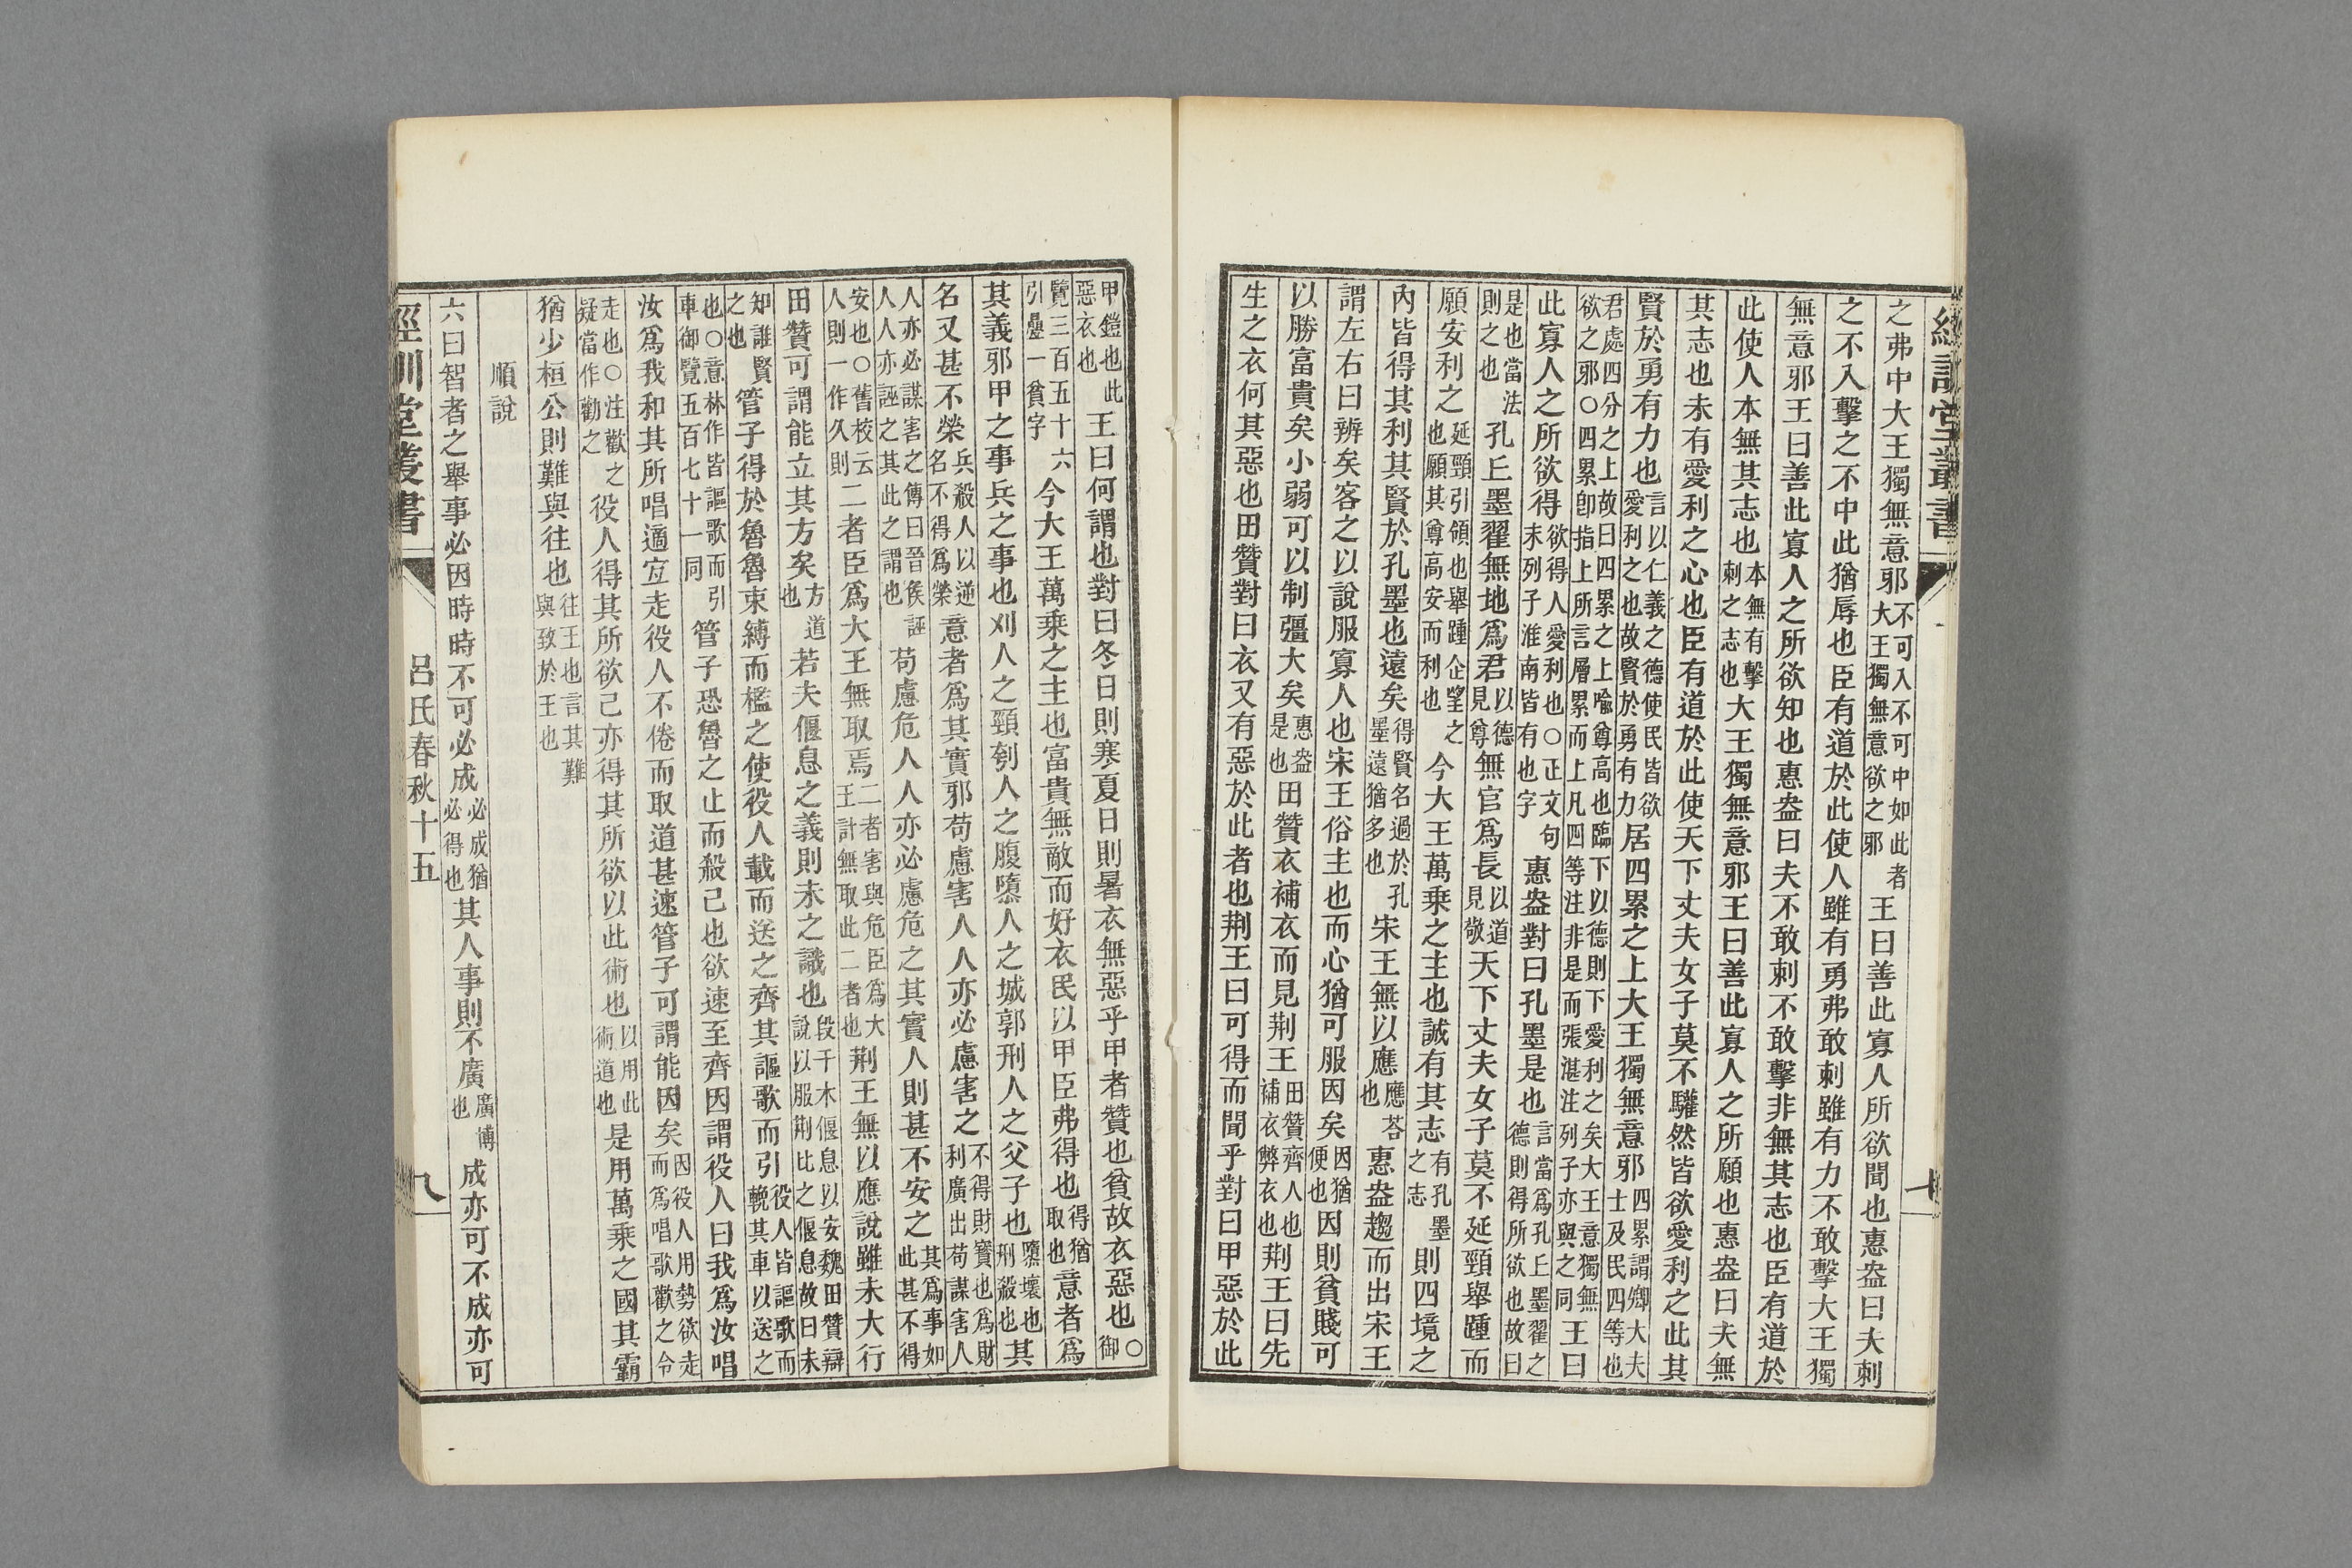 經訓堂叢書
之弗中大王獨無意邪不可入不可中如此者大王獨無意欲之邪王曰善此寡人所欲聞也惠盎曰夫刺
之不入擊之不中此猶辱也臣有道於此使人雖有勇弗敢刺雖有力不敢擊大王獨
無意邪王曰善此寡人之所欲知也惠盎曰夫不敢刺不敢擊非無其志也臣有道於
此使人本無其志也本無有擊刺之志也大王獨無意邪王曰善此寡人之所願也惠盎曰夫無
其志也未有愛利之心也臣有道於此使天下丈夫女子莫不驩然皆欲愛利之此其
賢於勇有力也言以仁義之德使民皆欲愛利之也故賢於勇有力居四累之上大王獨無意邪四累謂卿大夫士及民四等也
君處四分之上故曰四累之上喻尊高也臨下以德則下愛利之矣大王意獨無欲之邪○四累卽指上所言層累而上凡四等注非是而張湛注列子亦與之同王曰
此寡人之所欲得欲得人愛利也○正文句末列子淮南皆有也字惠盎對曰孔墨是也言當爲孔丘墨翟之德則得所欲也故曰
是也當法則之也孔丘墨翟無地爲君以德見尊無官爲長以道見敬天下丈夫女子莫不延頸舉踵而
願安利之延頸引領也舉踵企望之也願其尊高安而利也今大王萬乘之主也誠有其志有孔墨之志則四境之
內皆得其利其賢於孔墨也遠矣得賢名過於孔墨遠猶多也宋王無以應應荅也惠盎趨而出宋王
謂左右曰辨矣客之以說服寡人也宋王俗主也而心猶可服因矣因猶便也因則貧賤可
以勝富貴矣小弱可以制彊大矣惠盎是也田贊衣補衣而見荆王田贊齊人也補衣弊衣也荆王曰先
生之衣何其惡也田贊對曰衣又有惡於此者也荆王曰可得而聞乎對曰甲惡於此
甲鎧也此惡衣也王曰何謂也對曰冬日則寒夏日則暑衣無惡乎甲者贊也貧故衣惡也○御
覽三百五十六引壘一貧字今大王萬乘之主也富貴無敵而好衣民以甲臣弗得也得猶取也意者爲
其義邪甲之事兵之事也刈人之頸刳人之腹隳人之城郭刑人之父子也隳壞也刑殺也其
名又甚不榮兵殺人以逆名不得爲榮意者爲其實邪苟慮害人人亦必慮害之不得財寶也爲財利廣出苟謀害人
人亦必謀害之傳曰晉侯誣人人亦誣之其此之謂也苟慮危人人亦必慮危之其實人則甚不安之其爲事如此甚不得
安也○舊校云人則一作久則二者臣爲大王無取焉二者害與危臣爲大王計無取此二者也荆王無以應說雖未大行
田贊可謂能立其方矣方道也若夫偃息之義則未之識也段干木偃息以安魏田贊辯說以服荆比之偃息故曰未
知誰賢之也管子得於魯魯束縛而檻之使役人載而送之齊其謳歌而引役人皆謳歌而輓其車以送之
也○意林作皆謳歌而引車御覽五百七十一同管子恐魯之止而殺己也欲速至齊因謂役人曰我爲汝唱
汝爲我和其所唱適宜走役人不倦而取道甚速管子可謂能因矣因役人用勢欲走而爲唱歌歡之令
走也○注歡之疑當作勸之役人得其所欲己亦得其所欲以此術也以用此術道也是用萬乘之國其霸
猶少桓公則難與往也往王也言其難與致於王也
順說
六曰智者之舉事必因時時不可必成必成猶必得也其人事則不廣廣博也成亦可不成亦可
經訓堂叢書
呂氏春秋十五